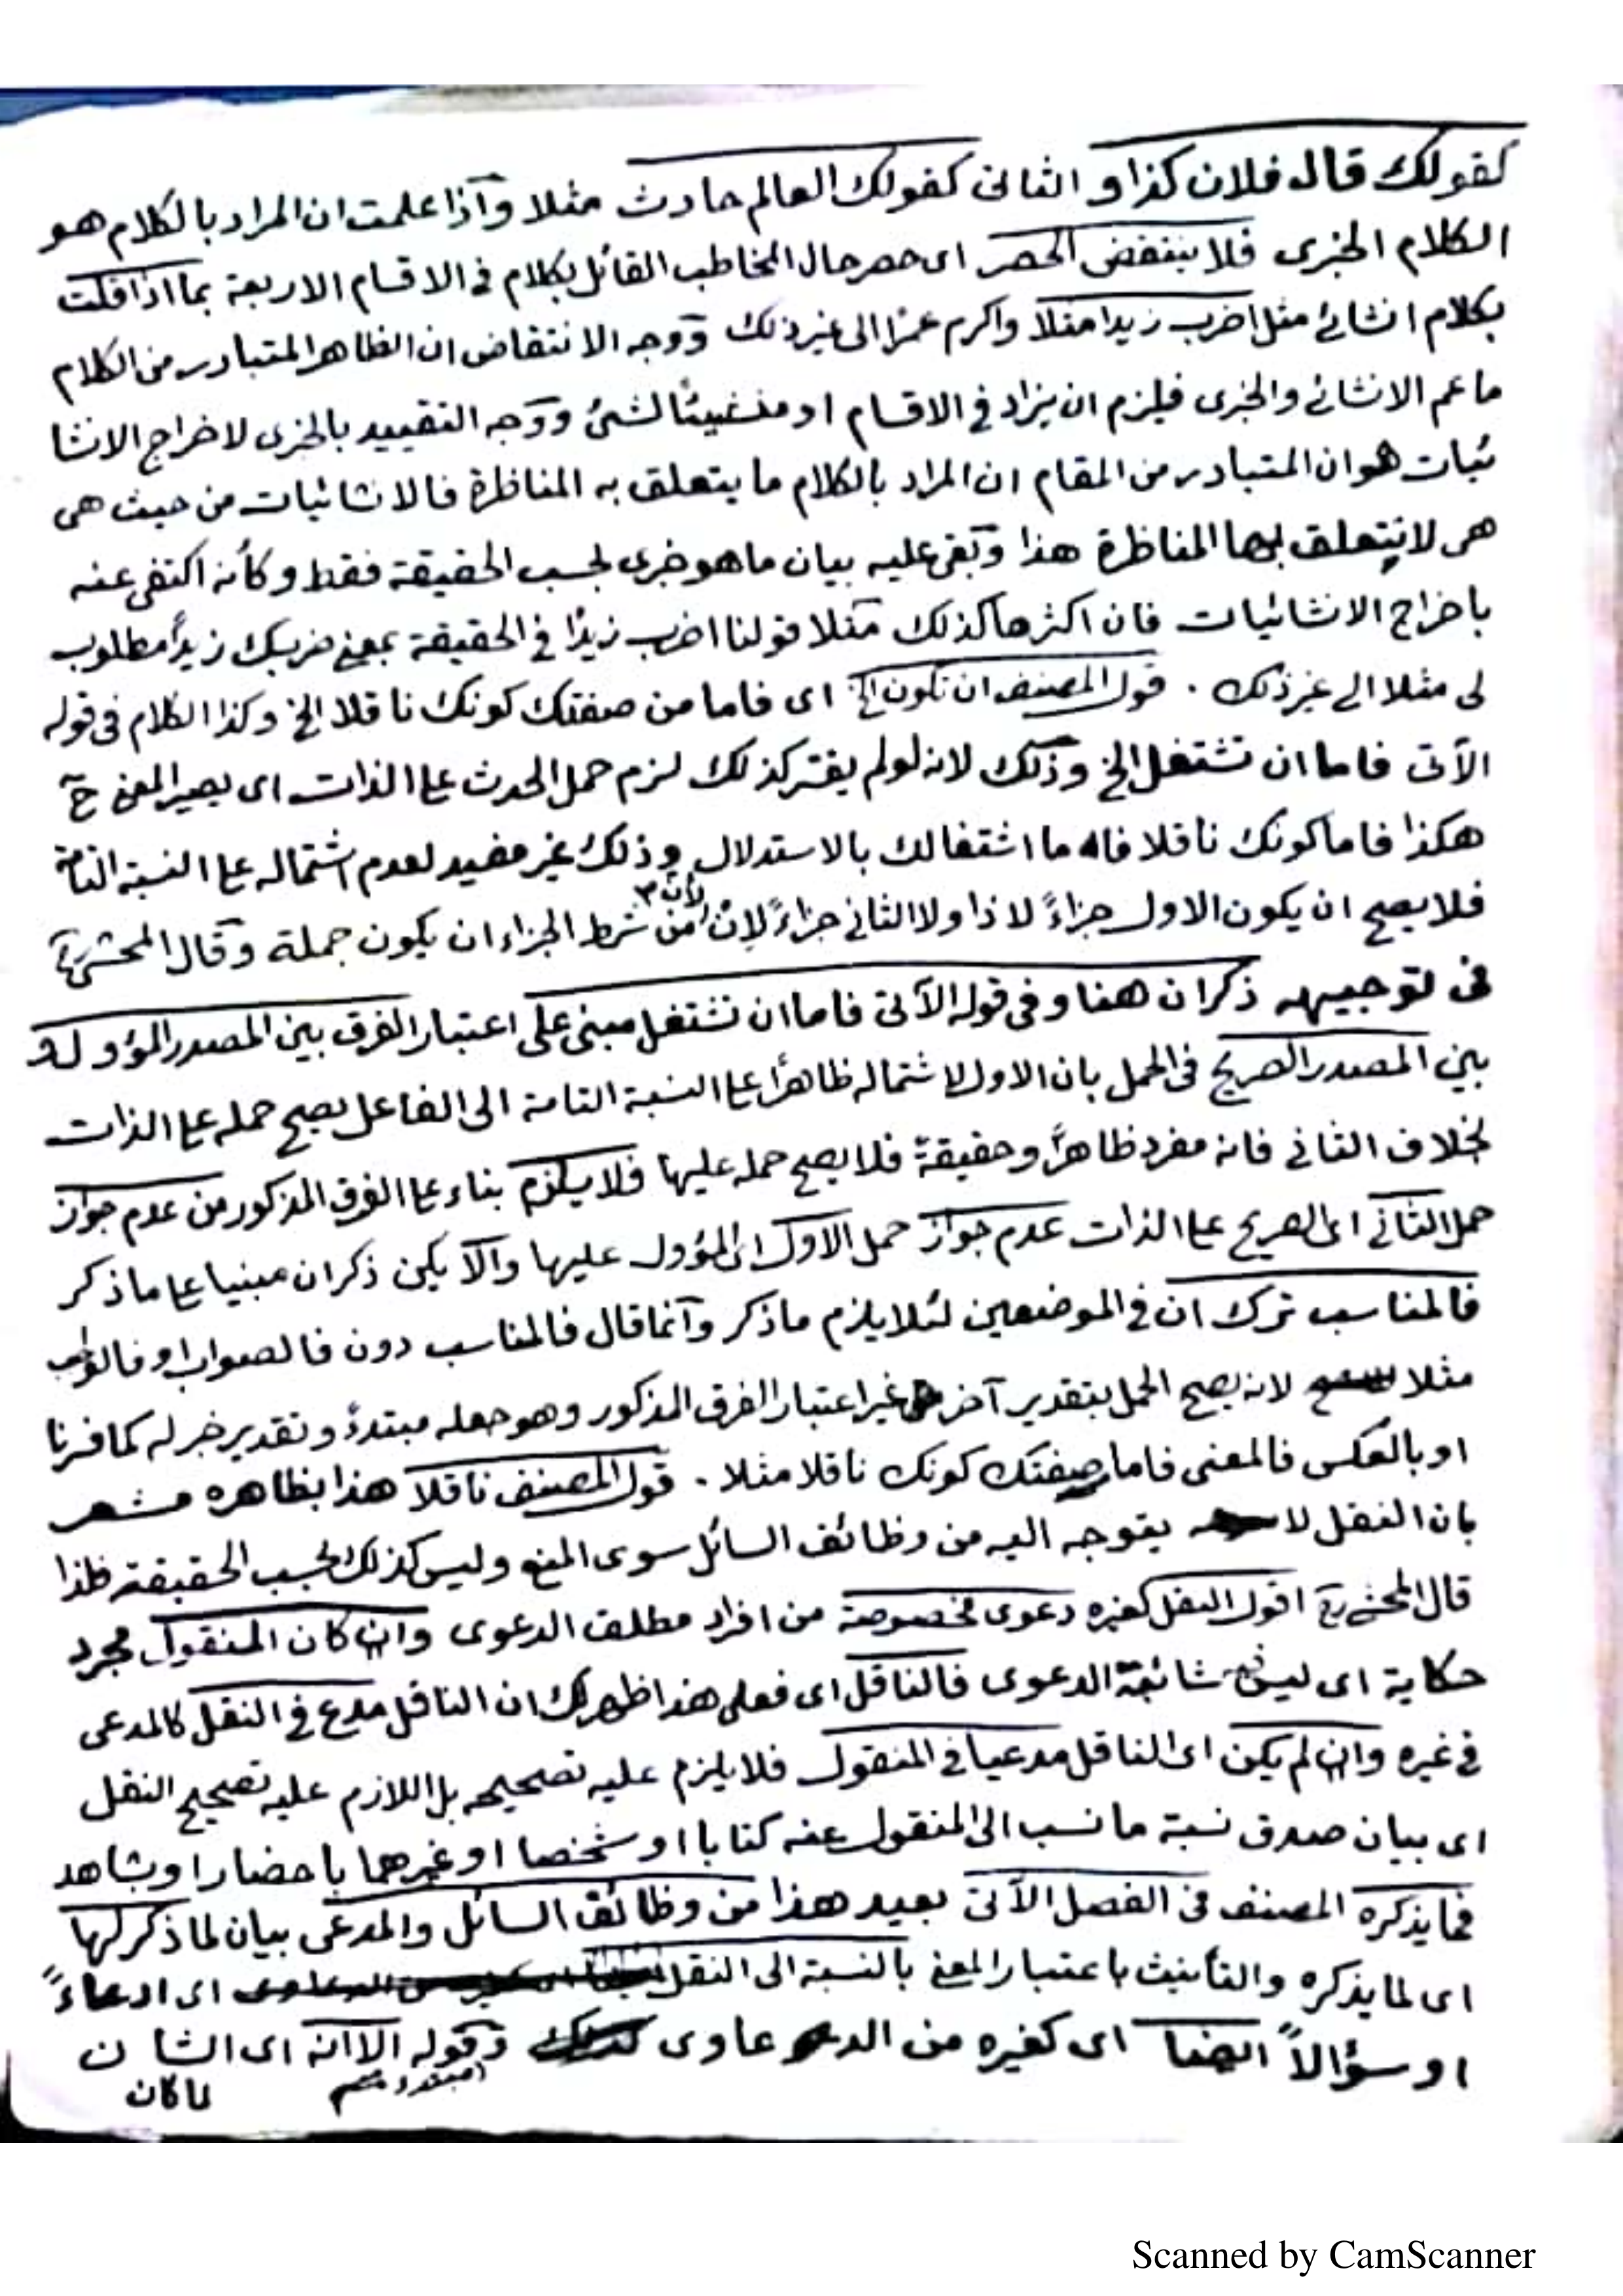 كقولك قال فلان كذا و الثانى كقولك العالم حادث مثلا وآذا علمت ان المراد بالكلام هو
الكلام الخبرى فلا ينتقض الحصر اى حصر حال المخاطب القائل بكلام فى الاقسام الاربعة بما اذا قلت
بكلام انشائى مثل اضرب زيدا مثلا واكرم عمرًا الى غير ذلك ووجه الانتقاض ان الظاهر المتبادر من الكلام
ما عم الانشائى والخبرى فيلزم ان يزاد فى الاقسام او ووجه التقييد بالخبرى لاخراج الانشا
ئيات هو ان المتبادر من المقام ان المراد بالكلام ما يتعلق به المناظرة فالانشائيات من حيث هى
هى لا يتعلق بها المناظرة هذا وبقى عليه بيان ما هو خبرى بحسب الحقيقة فقط وكأنه اكتفى عنه
باخراج الانشائيات فان اكثرها كذلك مثلا قولنا اضرب زيدًا فى الحقيقة بمعنى ضربك زيدًا مطلوب
لى مثلا الى غير ذلك . قول المصنف ان تكون الخ اى فاما من صفتك كونك ناقلا الخ وكذا الكلام فى قوله
الآتى فاما ان تشتغل الخ وذلك لانه لو لم يفسر كذلك لزم حمل الحدث على الذات اى يصير المعنى ح
هكذا فاما كونك ناقلا فاما اشتغالك بالاستدلال وذلك غير مفيد لعدم اشتماله على النسبة التامة
فلا يصح ان يكون الاول جزاءً لاذا ولا الثانى جزاءً لان من شرط الجزاء ان يكون جملة وقال المحشى رح
فى توجيهه ذكر ان هنا وفى قوله الآتى فاما ان تشتغل مبنى على اعتبار الفرق بين المصدر المؤول و
بين المصدر الصريح فى الحمل بان الاول لاشتماله ظاهرًا على النسبة التامة الى الفاعل يصح حمله على الذات
بخلاف الثانى فانه مفرد ظاهرًا وحقيقةً فلا يصح حمله عليها فلا يلزم بناء على الفرق المذكور من عدم جواز
حمل الثانى اى الصريح على الذات عدم جواز حمل الاول اى المؤول عليها والآ يكن ذكر ان مبنيا على ما ذكر
فالمناسب ترك ان فى الموضعين لئلا يلزم ما ذكر وآنما قال فالمناسب دون فالصواب او فالواجب
مثلا لانه يصح الحمل بتقدير آخر غير اعتبار الفرق المذكور وهو جعله مبتدءً وتقدير خبر له كما فسرنا
او بالعكس فالمعنى فاما صفتك كونك ناقلا مثلا . قول المصنف ناقلا هذا بظاهره مشعر
بان النقل لا يتوجه اليه من وظائف السائل سوى المنع وليس كذلك بحسب الحقيقة فلذا
قال المحشى رح اقول النقل كغيره دعوى مخصوصة من افراد مطلق الدعوى وان كان المنقول مجرد
حكاية اى ليس فيه شائبة الدعوى فالناقل اى فعلى هذا ظهر لك ان الناقل مدع فى النقل كالمدعى
فى غيره وان لم يكن اى الناقل مدعيا فى المنقول فلا يلزم عليه تصحيحه بل اللازم عليه تصحيح النقل
اى بيان صدق نسبة ما نسب الى المنقول عنه كتابا او شخصا او غيرهما باحضار او بشاهد
فما يذكره المصنف فى الفصل الآتى بعيد هذا من وظائف السائل والمدعى بيان لما ذكر لها
اى لما يذكره والتأنيث باعتبار المعنى بالنسبة الى النقل اى ادعاءً
او سؤالاً ايضا اى كغيره من الدعاوى وقوله الا انه اى الشان
مبتدء لما كان